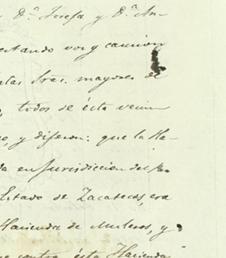 Dª Josefa y Dª An-
estando voz y caucion
tas tres mayores de
todos de ésta vecin
y dijeron: que la Ha-
en Jurisdiccion del
Estado de Zacatecas, era
Hacienda de Muleros, y
contra ésta Hacienda